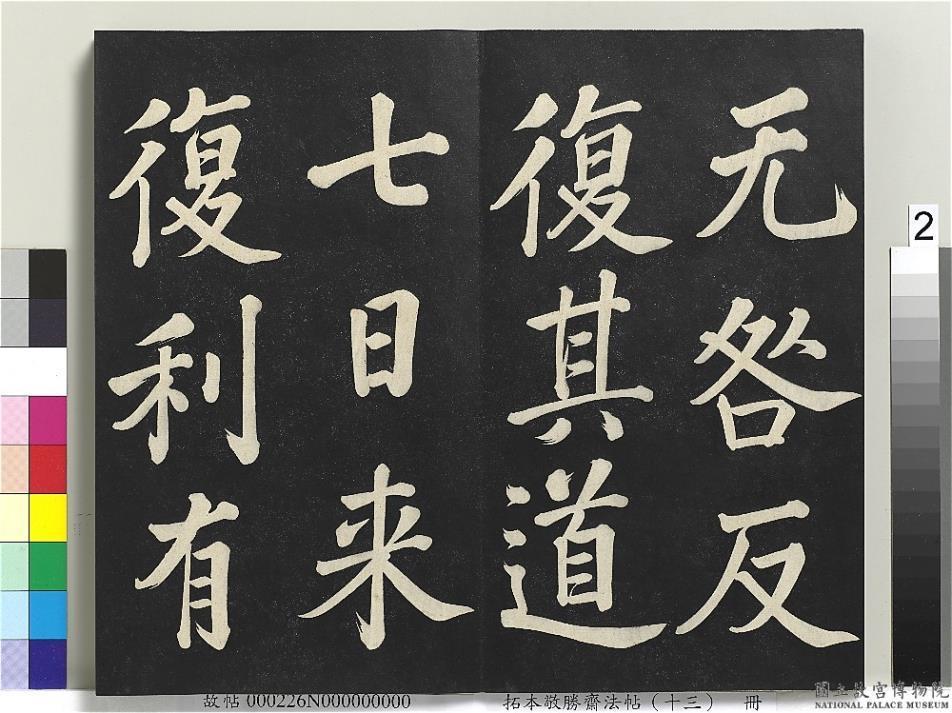 无咎反
復其道
七日来
復利有
2
故帖 000226N000000000
拓本敬勝齋法帖（十三） 冊
國立故宮博物院
NATIONAL PALACE MUSEUM